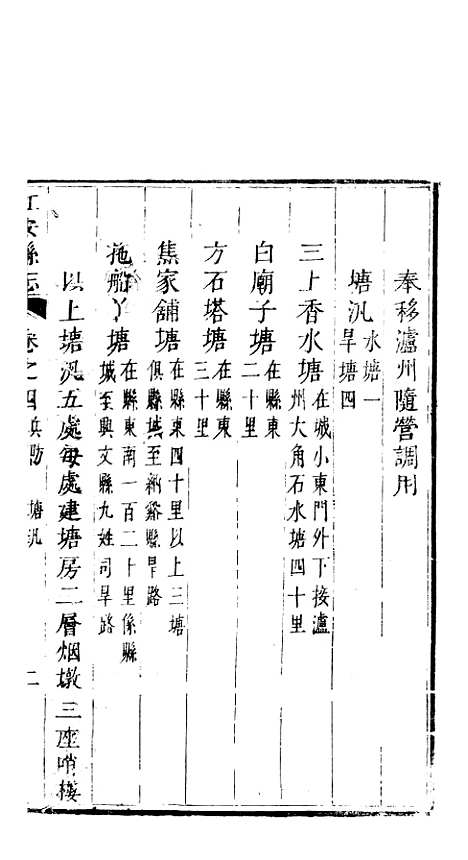 奉移瀘州隨營調用
塘汛水塘一
旱塘四
三上香水塘在城小東門外下接瀘
州大角石水塘四十里
白廟子塘在縣東
二十里
方石塔塘在縣東
三十里
焦家舖塘在縣東四十里以上三塘
俱縣城至納谿縣旱路
拖船丫塘在縣東南一百二十里係縣
城至興文縣九姓司旱路
以上塘汛五處每處建塘房二層烟墩三座哨樓
江安縣志 卷之四 兵防 塘汛 二